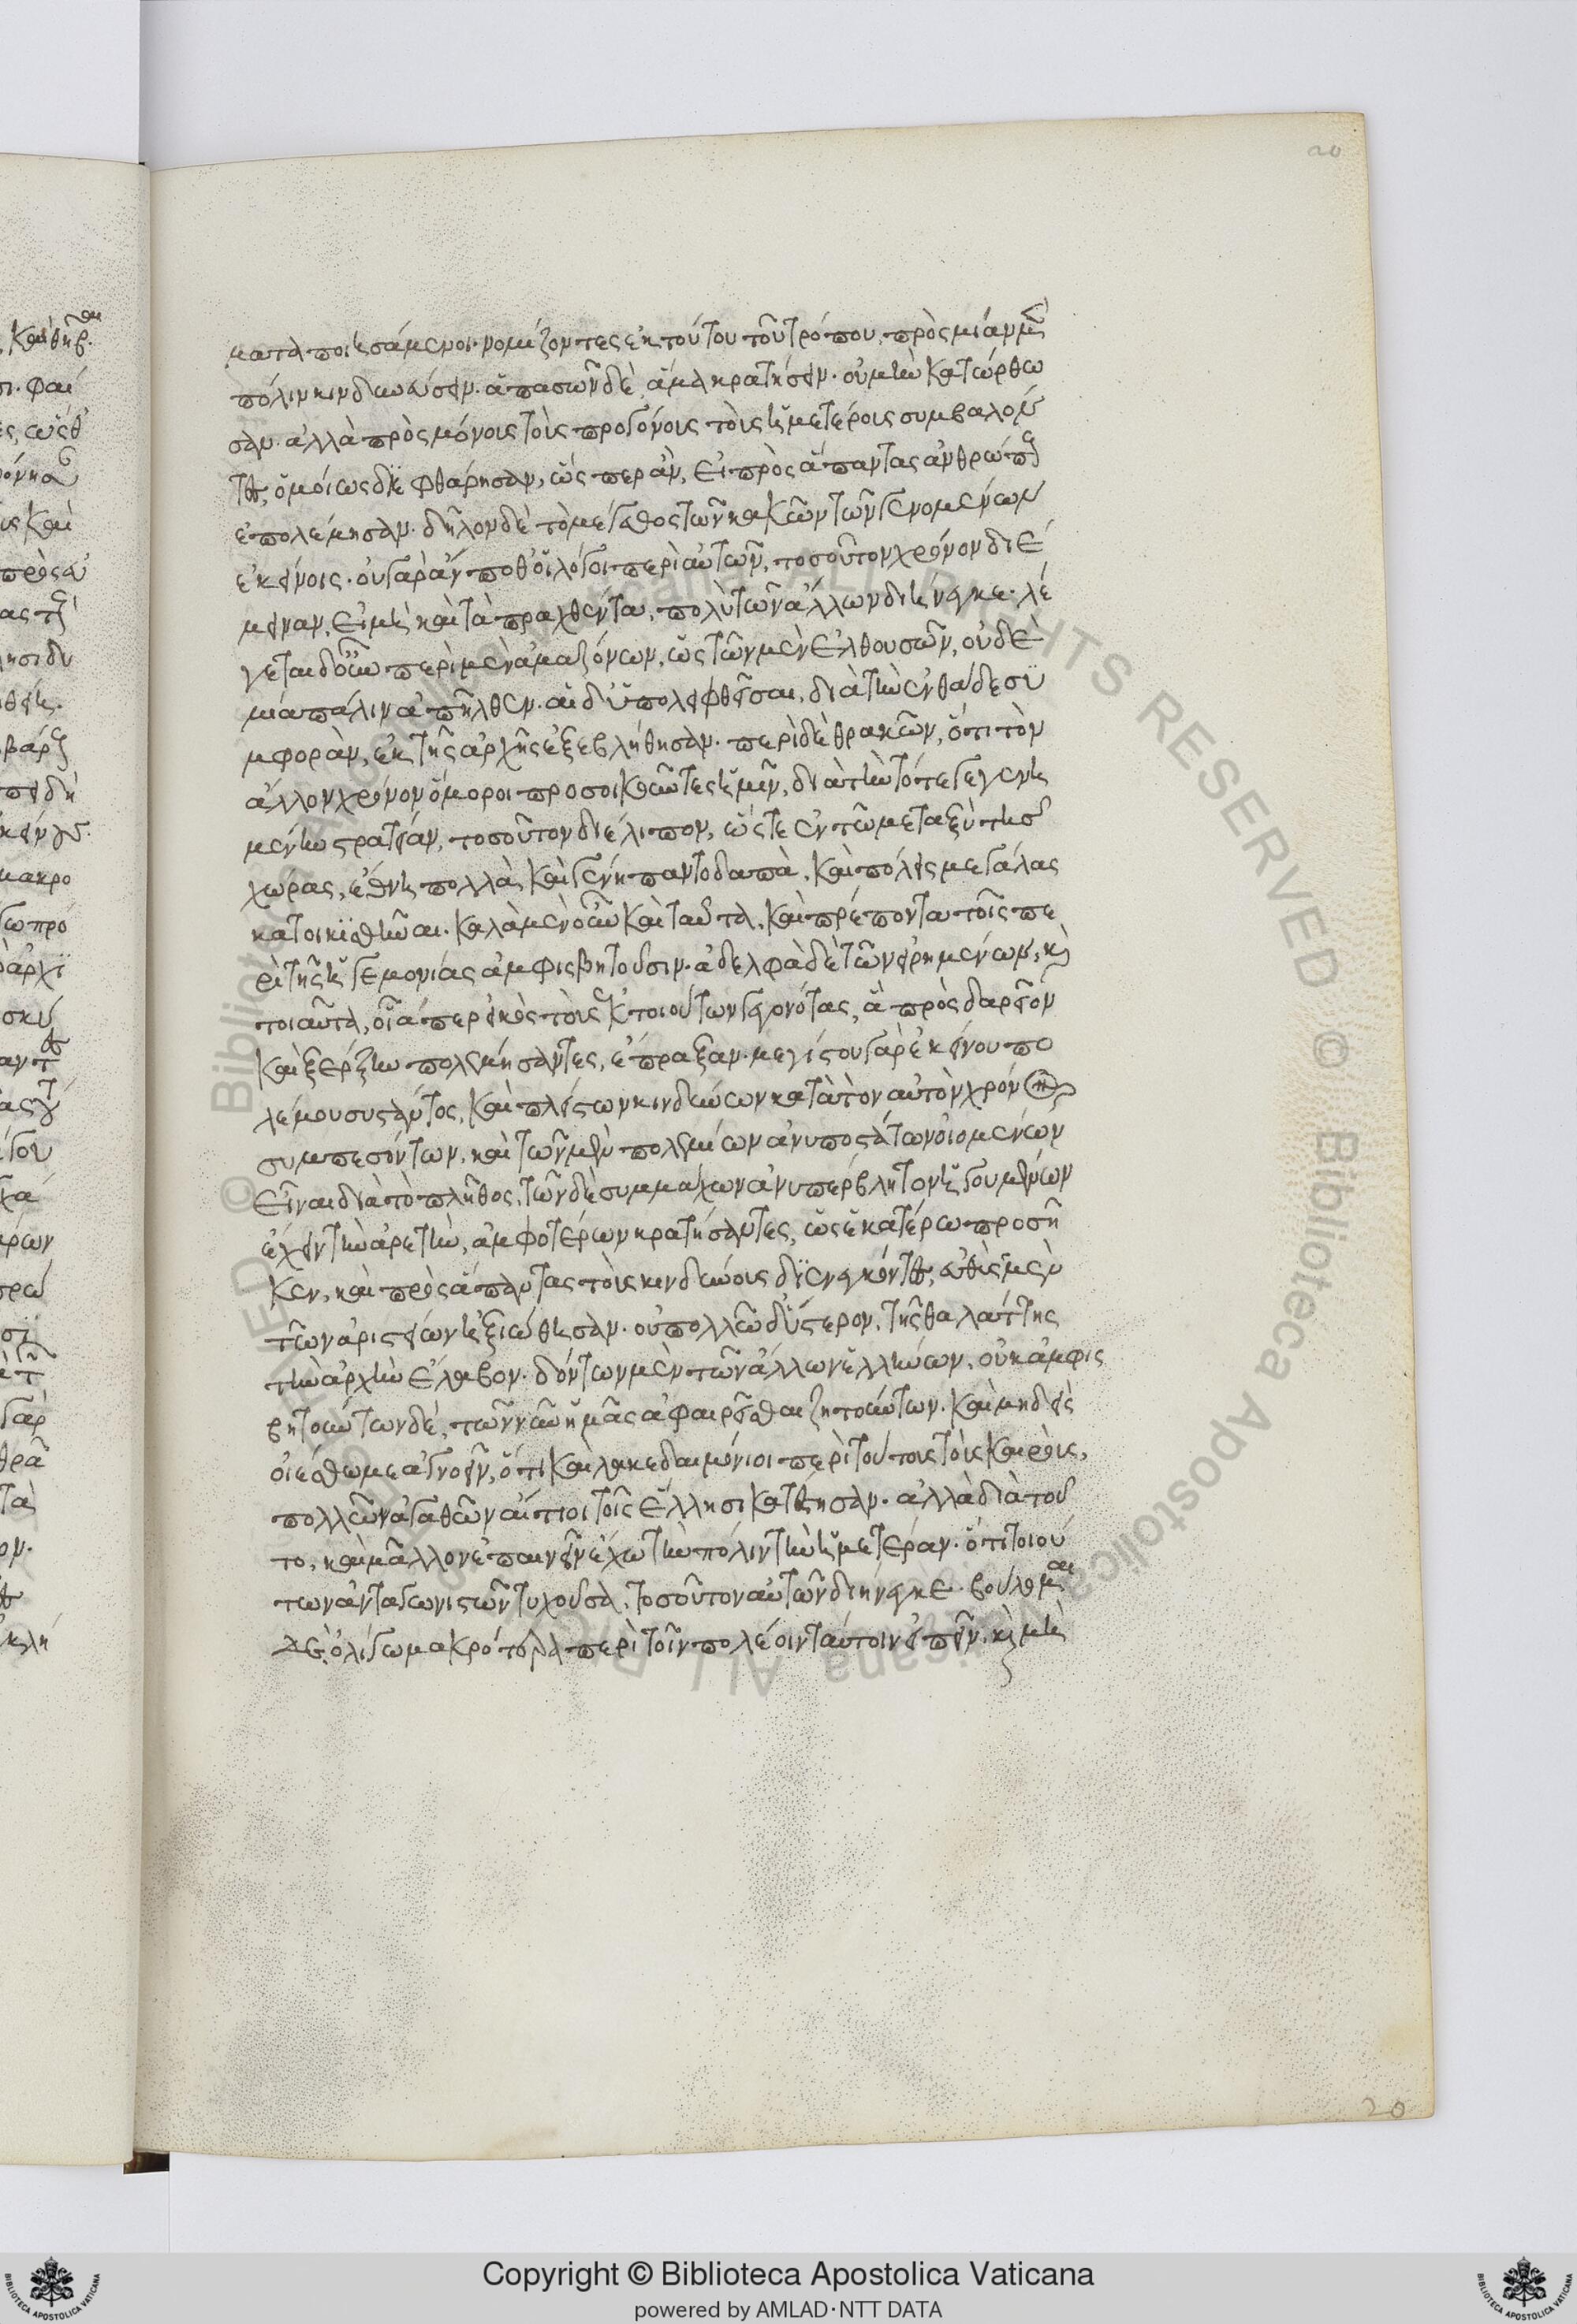 ματα ποιησάμενοι· νομίζοντες ἐκ τούτου τοῦ τρόπου, πρὸς μίαν μὲν
πόλιν κινδυνεύσειν· ἁπασῶν δὲ ἅμα κρατήσειν· οὐ μὴν κατώρθω
σαν· ἀλλὰ πρὸς μόνους τοὺς προγόνους τοὺς ἡμετέρους συμβαλόν
τες, ὁμοίως διεφθάρησαν, ὥσπερ ἂν, εἰ πρὸς ἅπαντας ἀνθρώπους
ἐπολέμησαν· δῆλον δὲ τὸ μέγαθος τῶν κακῶν τῶν γενομένων
ἐκείνοις· οὐ γὰρ ἄν ποθ' οἱ λόγοι περὶ αὐτῶν, τοσοῦτον χρόνον διέ
μειναν, εἰ μὴ καὶ τὰ πραχθέντα, πολὺ τῶν ἄλλων διήνεγκε· λέ
γεται δ' οὖν περὶ μὲν ἀμαζόνων, ὡς τῶν μὲν ἐλθουσῶν, οὐδε
μία πάλιν ἀπῆλθεν· αἱ δ' ὑπολειφθεῖσαι, διὰ τὴν ἐνθάδε συ
μφορὰν, ἐκ τῆς ἀρχῆς ἐξεβλήθησαν· περὶ δὲ θρακῶν, ὅτι τὸν
ἄλλον χρόνον ὅμοροι προσοικοῦντες ἡμῖν, διὰ τὴν τότε γεγενη
μένην στρατείαν, τοσοῦτον διέλιπον, ὥστε ἐν τῷ μεταξὺ τῆς
χώρας, ἔθνη πολλὰ, καὶ γένη παντοδαπὰ, καὶ πόλεις μεγάλας
κατοικισθῆναι· καλὰ μὲν οὖν καὶ ταῦτα, καὶ πρέποντα τοῖς πε
ρὶ τῆς ἡγεμονίας ἀμφισβητοῦσιν· ἀδελφὰ δὲ τῶν εἰρημένων, καὶ
τοιαῦτα, οἷά περ εἰκὸς τοὺς ἐκ τοιούτων γεγονότας, ἃ πρὸς δαρεῖον
καὶ ξέρξην πολεμήσαντες, ἔπραξαν· μεγίστου γὰρ ἐκείνου πο
λέμου συστάντος, καὶ πλείστων κινδύνων κατὰ τὸν αὐτὸν χρόνον
συμπεσόντων, καὶ τῶν μὲν πολεμίων ἀνυποστάτων οἰομένων
εἶναι διὰ τὸ πλῆθος, τῶν δὲ συμμάχων ἀνυπέρβλητον ἡγουμένων
ἔχειν τὴν ἀρετὴν, ἀμφοτέρων κρατήσαντες, ὡς ἑκατέρων προσῆ
κεν, καὶ πρὸς ἅπαντας τοὺς κινδύνους διενεγκόντες, εὐθὺς μὲν
τῶν ἀριστείων ἠξιώθησαν· οὐ πολλῷ δ' ὕστερον, τῆς θαλάττης
τὴν ἀρχὴν ἔλαβον· δόντων μὲν τῶν ἄλλων ἑλλήνων, οὐκ ἀμφισ
βητούντων δὲ, τῶν νῦν ἡμᾶς ἀφαιρεῖσθαι ζητούντων· καὶ μηδεὶς
οἰέσθω με ἀγνοεῖν, ὅτι καὶ λακεδαιμόνιοι περὶ τούτους τοὺς καιροὺς,
πολλῶν ἀγαθῶν αἴτιοι τοῖς ἕλλησι κατέστησαν· ἀλλὰ διὰ τοῦ
το, καὶ μᾶλλον ἐπαινεῖν ἔχω τὴν πόλιν τὴν ἡμετέραν· ὅτι τοιού
των ἀνταγωνιστῶν τυχοῦσα, τοσοῦτον αὐτῶν διήνεγκε· βούλομαι
δὲ ὀλίγῳ μακρότερα περὶ τοῖν πολέοιν ταύτοιν εἰπεῖν, καὶ μὴ
20
20
Copyright © Biblioteca Apostolica Vaticana
powered by AMLAD·NTT DATA